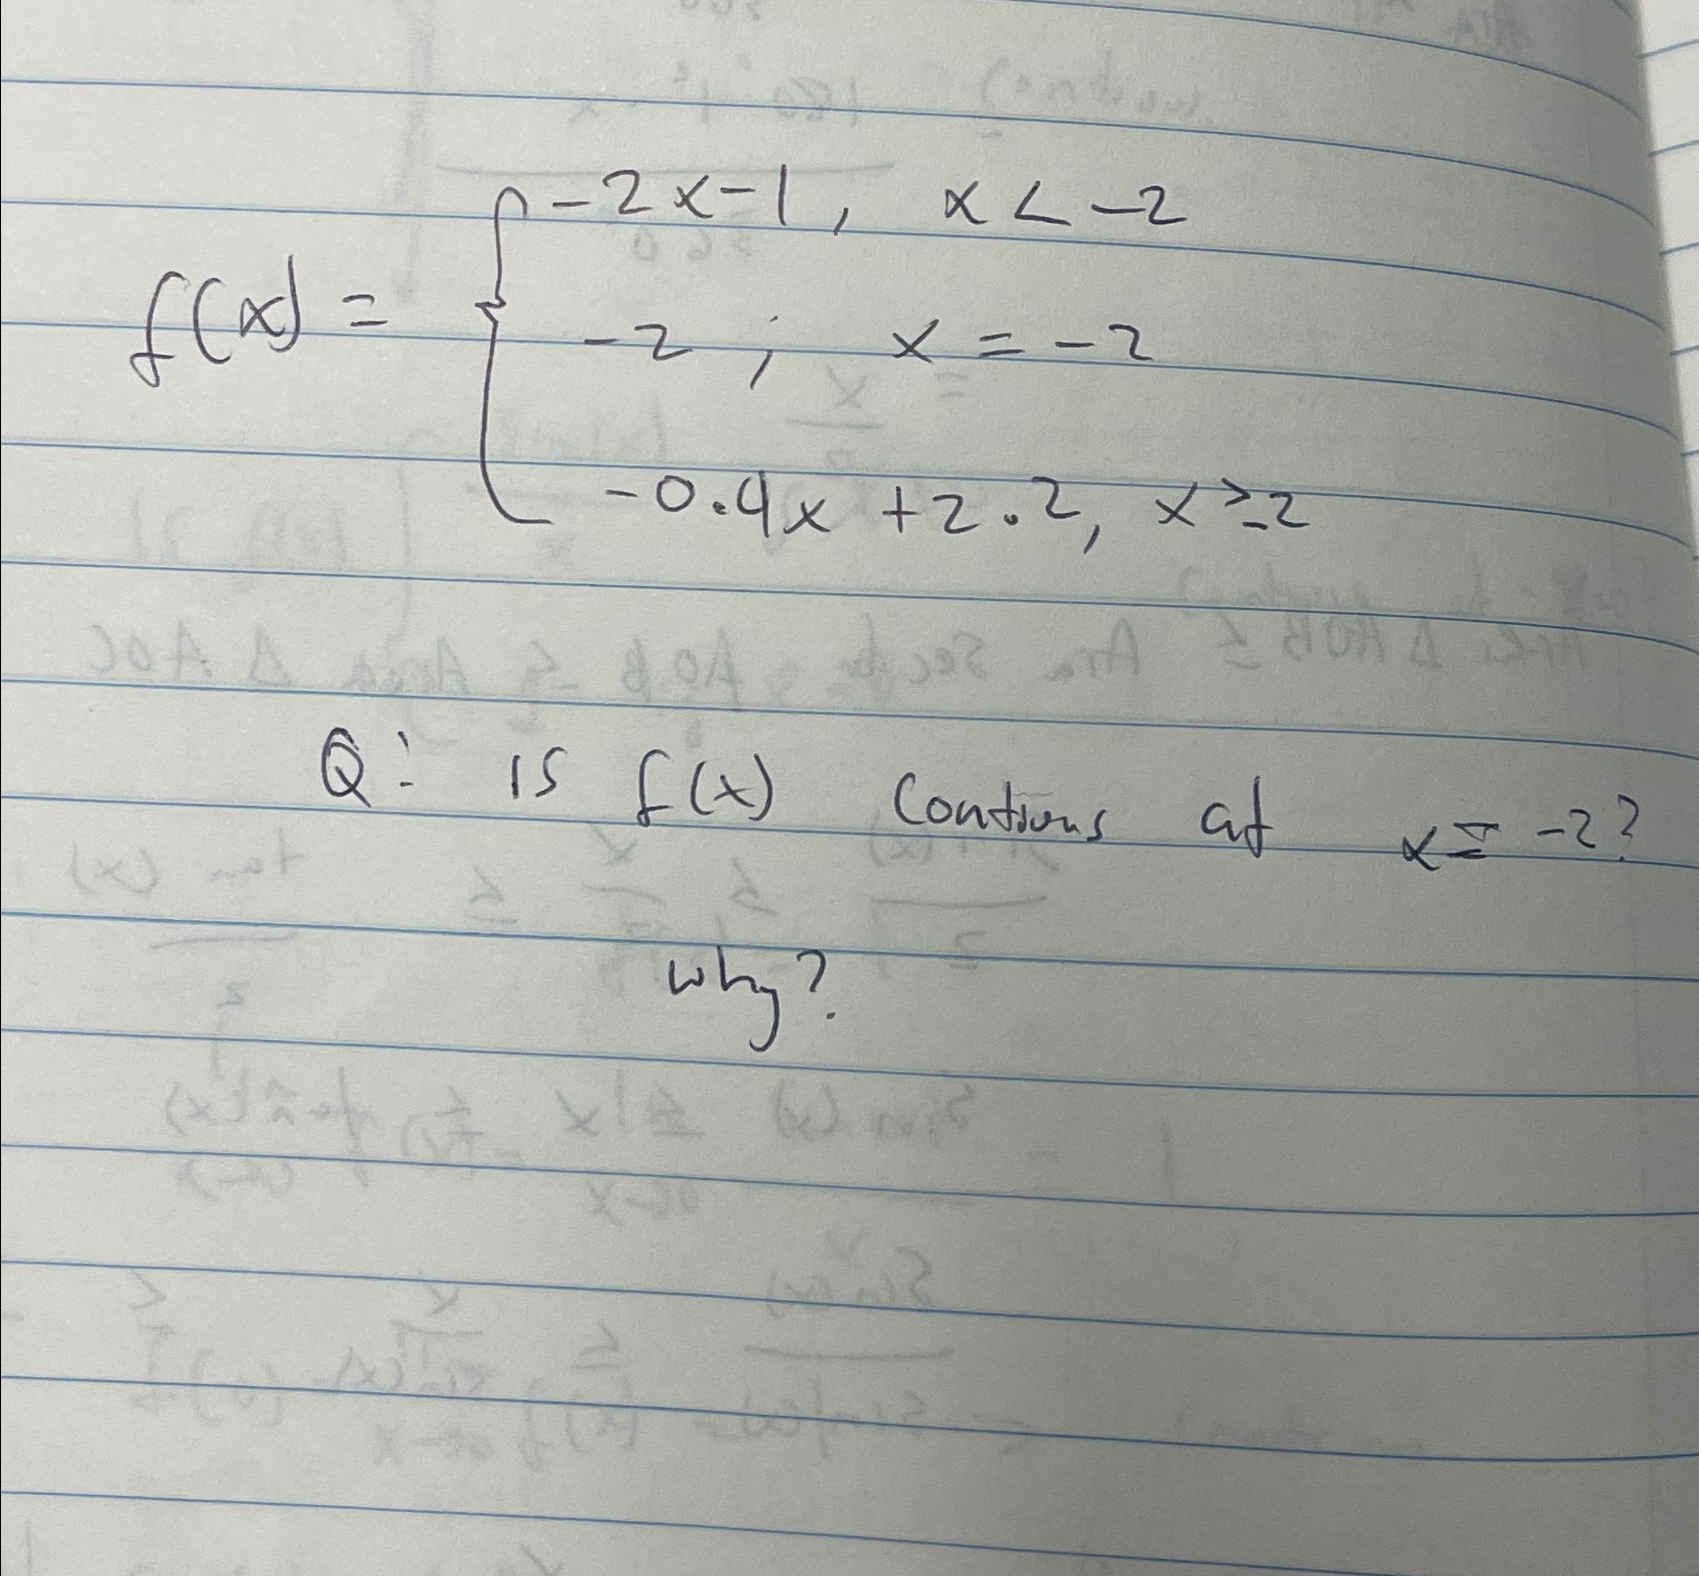 f(x) = { -2x-1, x < -2
-2 ; x = -2
-0.4x + 2.2, x > -2
Q: is f(x) Contious at x = -2?
why?